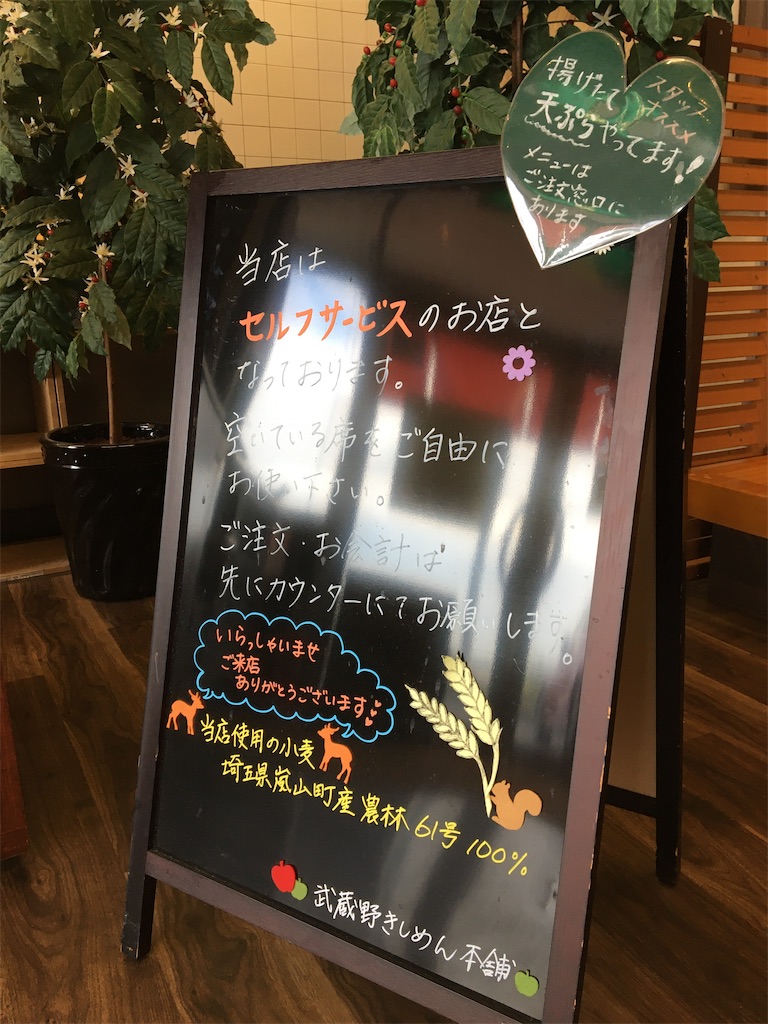 揚げたて
天ぷらやってます!
スタッフ
オススメ
メニューは
ご注文窓口に
あります
当店は
セルフサービスのお店と
なっております。
空いている席をご自由に
お使い下さい。
ご注文・お会計は
先にカウンターにてお願いします。
いらっしゃいませ
ご来店
ありがとうございます
当店使用の小麦
埼玉県嵐山町産 農林61号 100%
武蔵野きしめん本舗